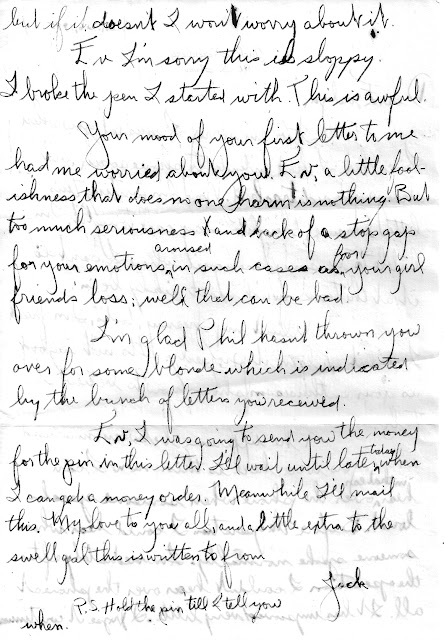 but if it doesn't I won't worry about it.
Ev I'm sorry this is sloppy.
I broke the pen I started with. This is awful.
Your mood of your first letter to me
had me worried about you. Ev, a little fool-
ishness that does no one harm is nothing. But
too much seriousness and lack of a stop gap
for your emotions, aroused in such cases as your poor girl
friends loss; well that can be bad.
I'm glad Phil hasn't thrown you
over for some blonde which is indicated
by the bunch of letters you received.
Ev, I was going to send you the money
for the pin in this letter. I'll wait until later today when
I can get a money order. Meanwhile I'll mail
this. My love to you all, and a little extra to the
swell gal this is written to from
Jack
P.S. Hold the pin till I tell you
when.